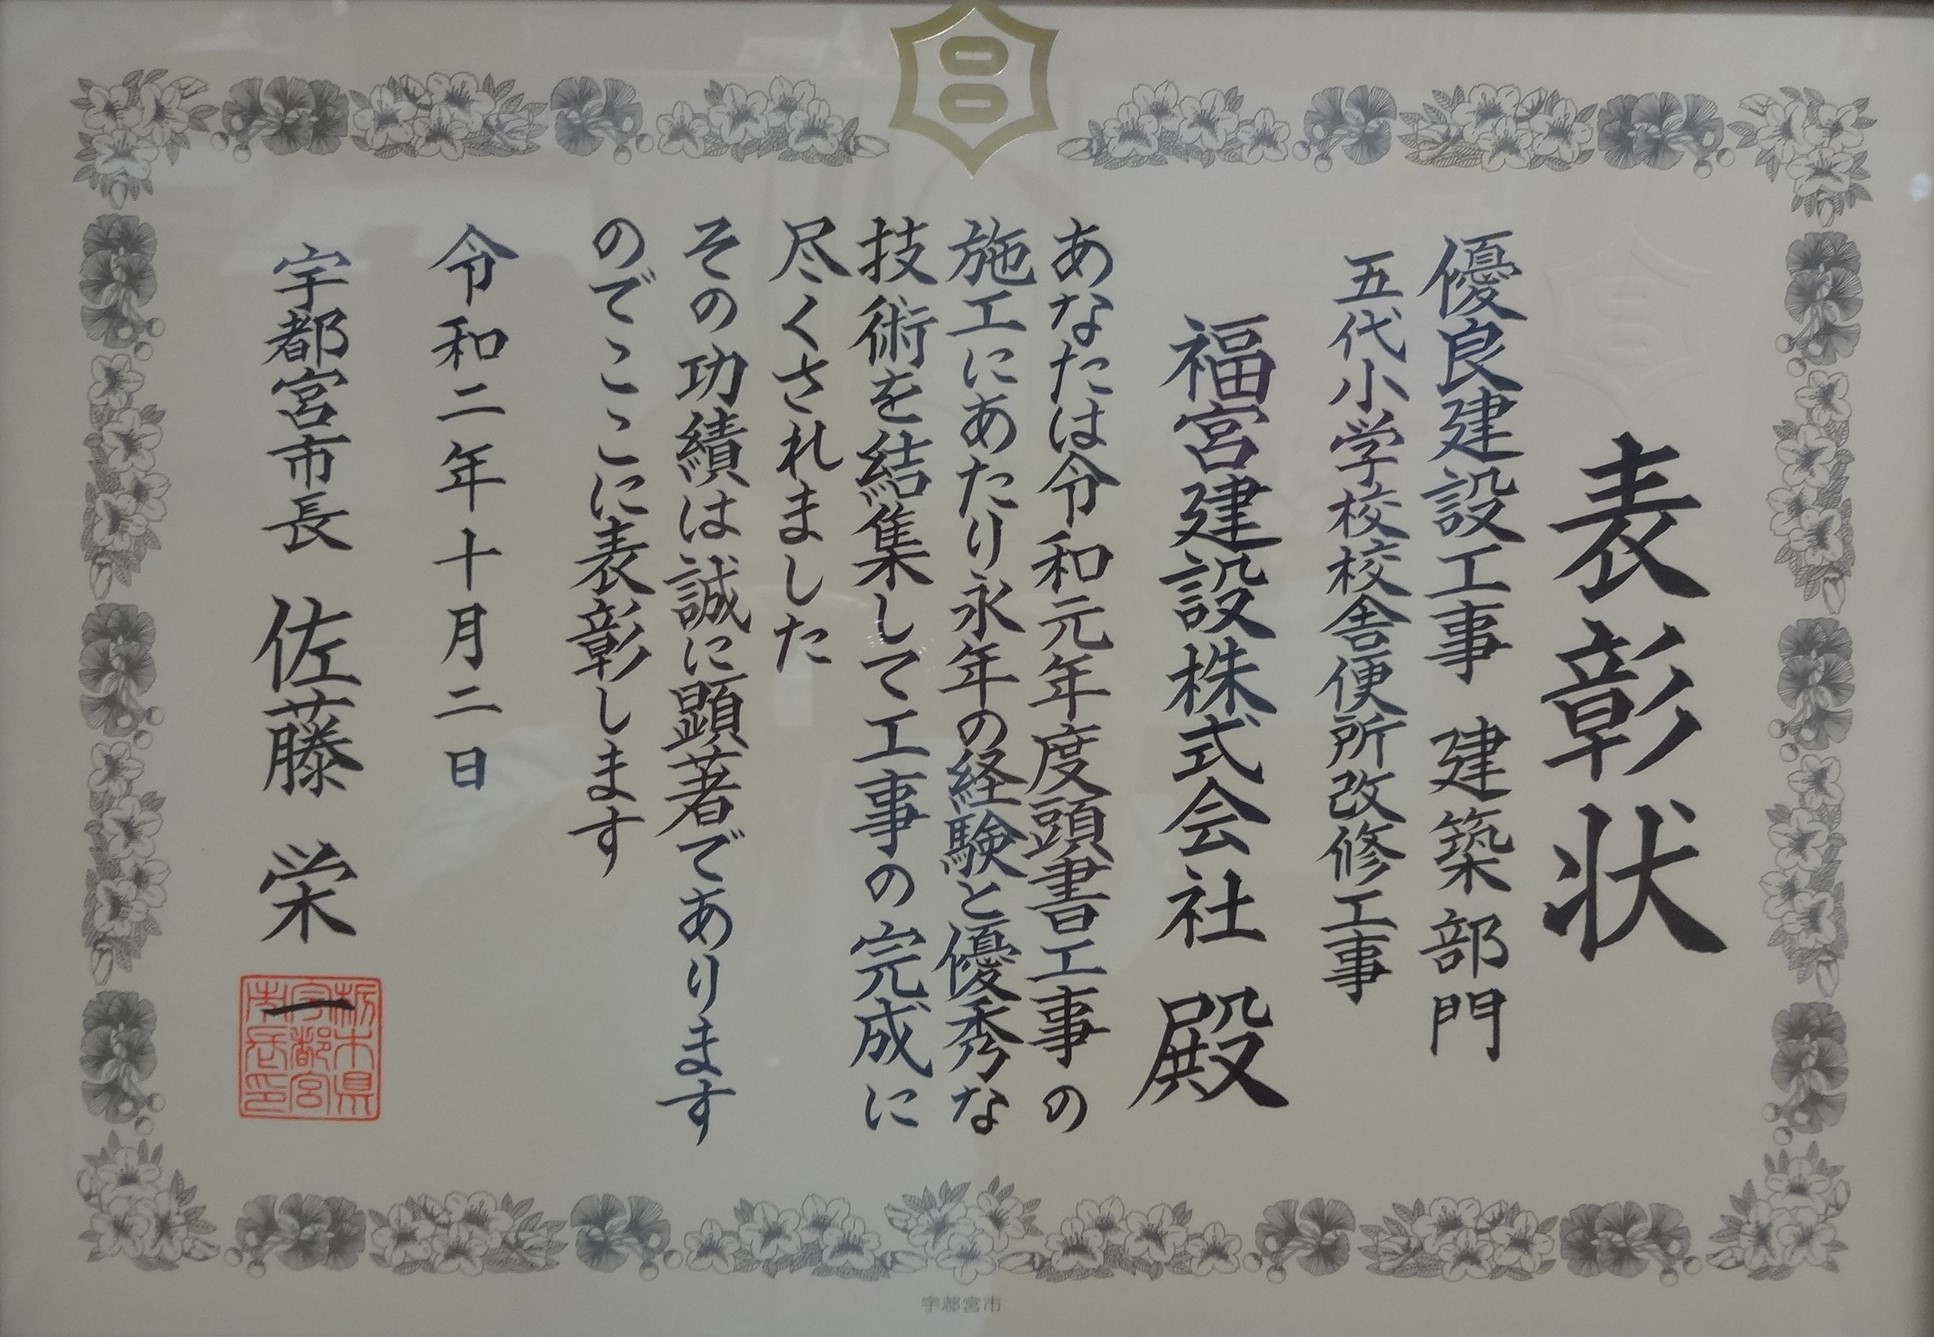 表彰状
優良建設工事 建築部門
五代小学校校舎便所改修工事
福宮建設株式会社 殿
あなたは令和元年度頭書工事の
施工にあたり永年の経験と優秀な
技術を結集して工事の完成に
尽くされました
その功績は誠に顕著であります
のでここに表彰します
令和二年十月二日
宇都宮市長 佐藤 栄一
栃木県
宇都宮
市長印
宇都宮市